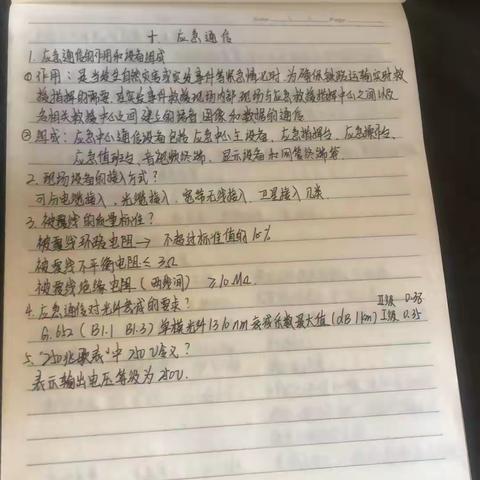 十 应急通信
1. 应急通信的作用和设备组成
① 作用：是当发生自然灾害或突发事件等紧急情况时,为确保铁路运输实时救
援指挥的需要,在突发事件救援现场内部,现场与应急救援指挥中心之间以及
各相关救援中心之间建立的语音 图像和数据的通信
② 组成：应急中心通信设备包括应急中心主设备、应急指挥台、应急操作台、
应急值班台、音视频终端、显示设备和网管终端等.
2. 现场设备的接入方式？
可分电缆接入、光缆接入、宽带无线接入、卫星接入几类.
3. 被覆线的质量标准？
被覆线环路电阻→ 不超过标准值的15%
被覆线不平衡电阻≤ 3Ω
被覆线绝缘电阻(两线间) ≥10MΩ
4. 应急通信对光纤衰减的要求？
G.652 (B1.1 B1.3) 单模光纤1310nm衰减系数最大值(dB/km) Ⅰ级 0.35
Ⅱ级 0.38
5. "250兆欧表"中250V含义？
表示输出电压等级为250V.